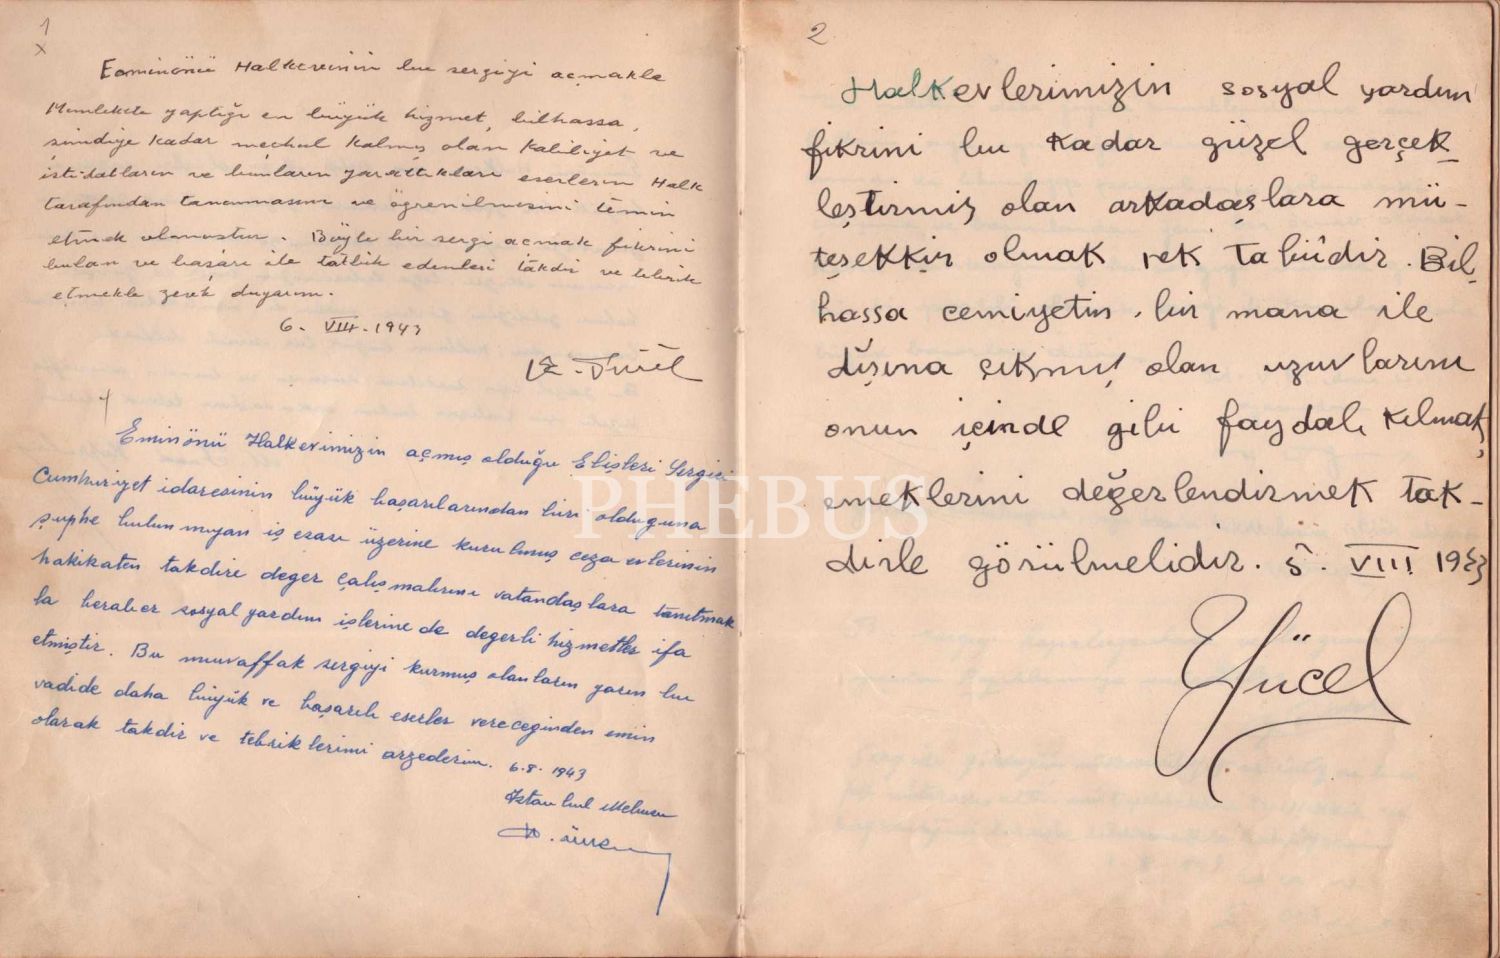 1
x
Eminönü Halkevinin bu sergiyi açmakla
Memlekete yaptığı en büyük hizmet, bilhassa,
şimdiye kadar meçhul kalmış olan kabiliyet ve
istidatların ve bunların yarattıkları eserlerin Halk
tarafından tanınmasını ve öğrenilmesini temin
etmek olmuştur. Böyle bir sergi açmak fikrini
bulan ve başarı ile tatbik edenleri takdir ve tebrik
etmekle zevk duyarım.
6. VIII. 1943
Eminönü Halkevimizin açmış olduğu Elişleri Sergisi
Cumhuriyet idaresinin büyük başarılarından biri olduguna
şuphe bulunmıyan iş esası üzerine kurulmuş ceza evlerinin
hakikaten takdire deger çalışmalarını vatandaşlara tanıtmak
la beraber sosyal yardım işlerine de degerli hizmetler ifa
etmiştir. Bu muvaffak sergiyi kurmuş olanların yarın bu
vadide daha büyük ve başarılı eserler vereceginden emin
olarak takdir ve tebriklerimi arzederim. 6.8.1943
İstanbul Mebusu
2
Halkevlerimizin sosyal yardım
fikrini bu kadar güzel gerçek-
leştirmiş olan arkadaşlara mü-
teşekkir olmak pek tabiîdir. Bil-
hassa cemiyetin bir mana ile
dışına çıkmış olan uzuvlarını
onun içinde gibi faydalı kılmak,
emeklerini değerlendirmek tak-
dirle görülmelidir. 5. VIII 1943
Yücel
PHEBUS